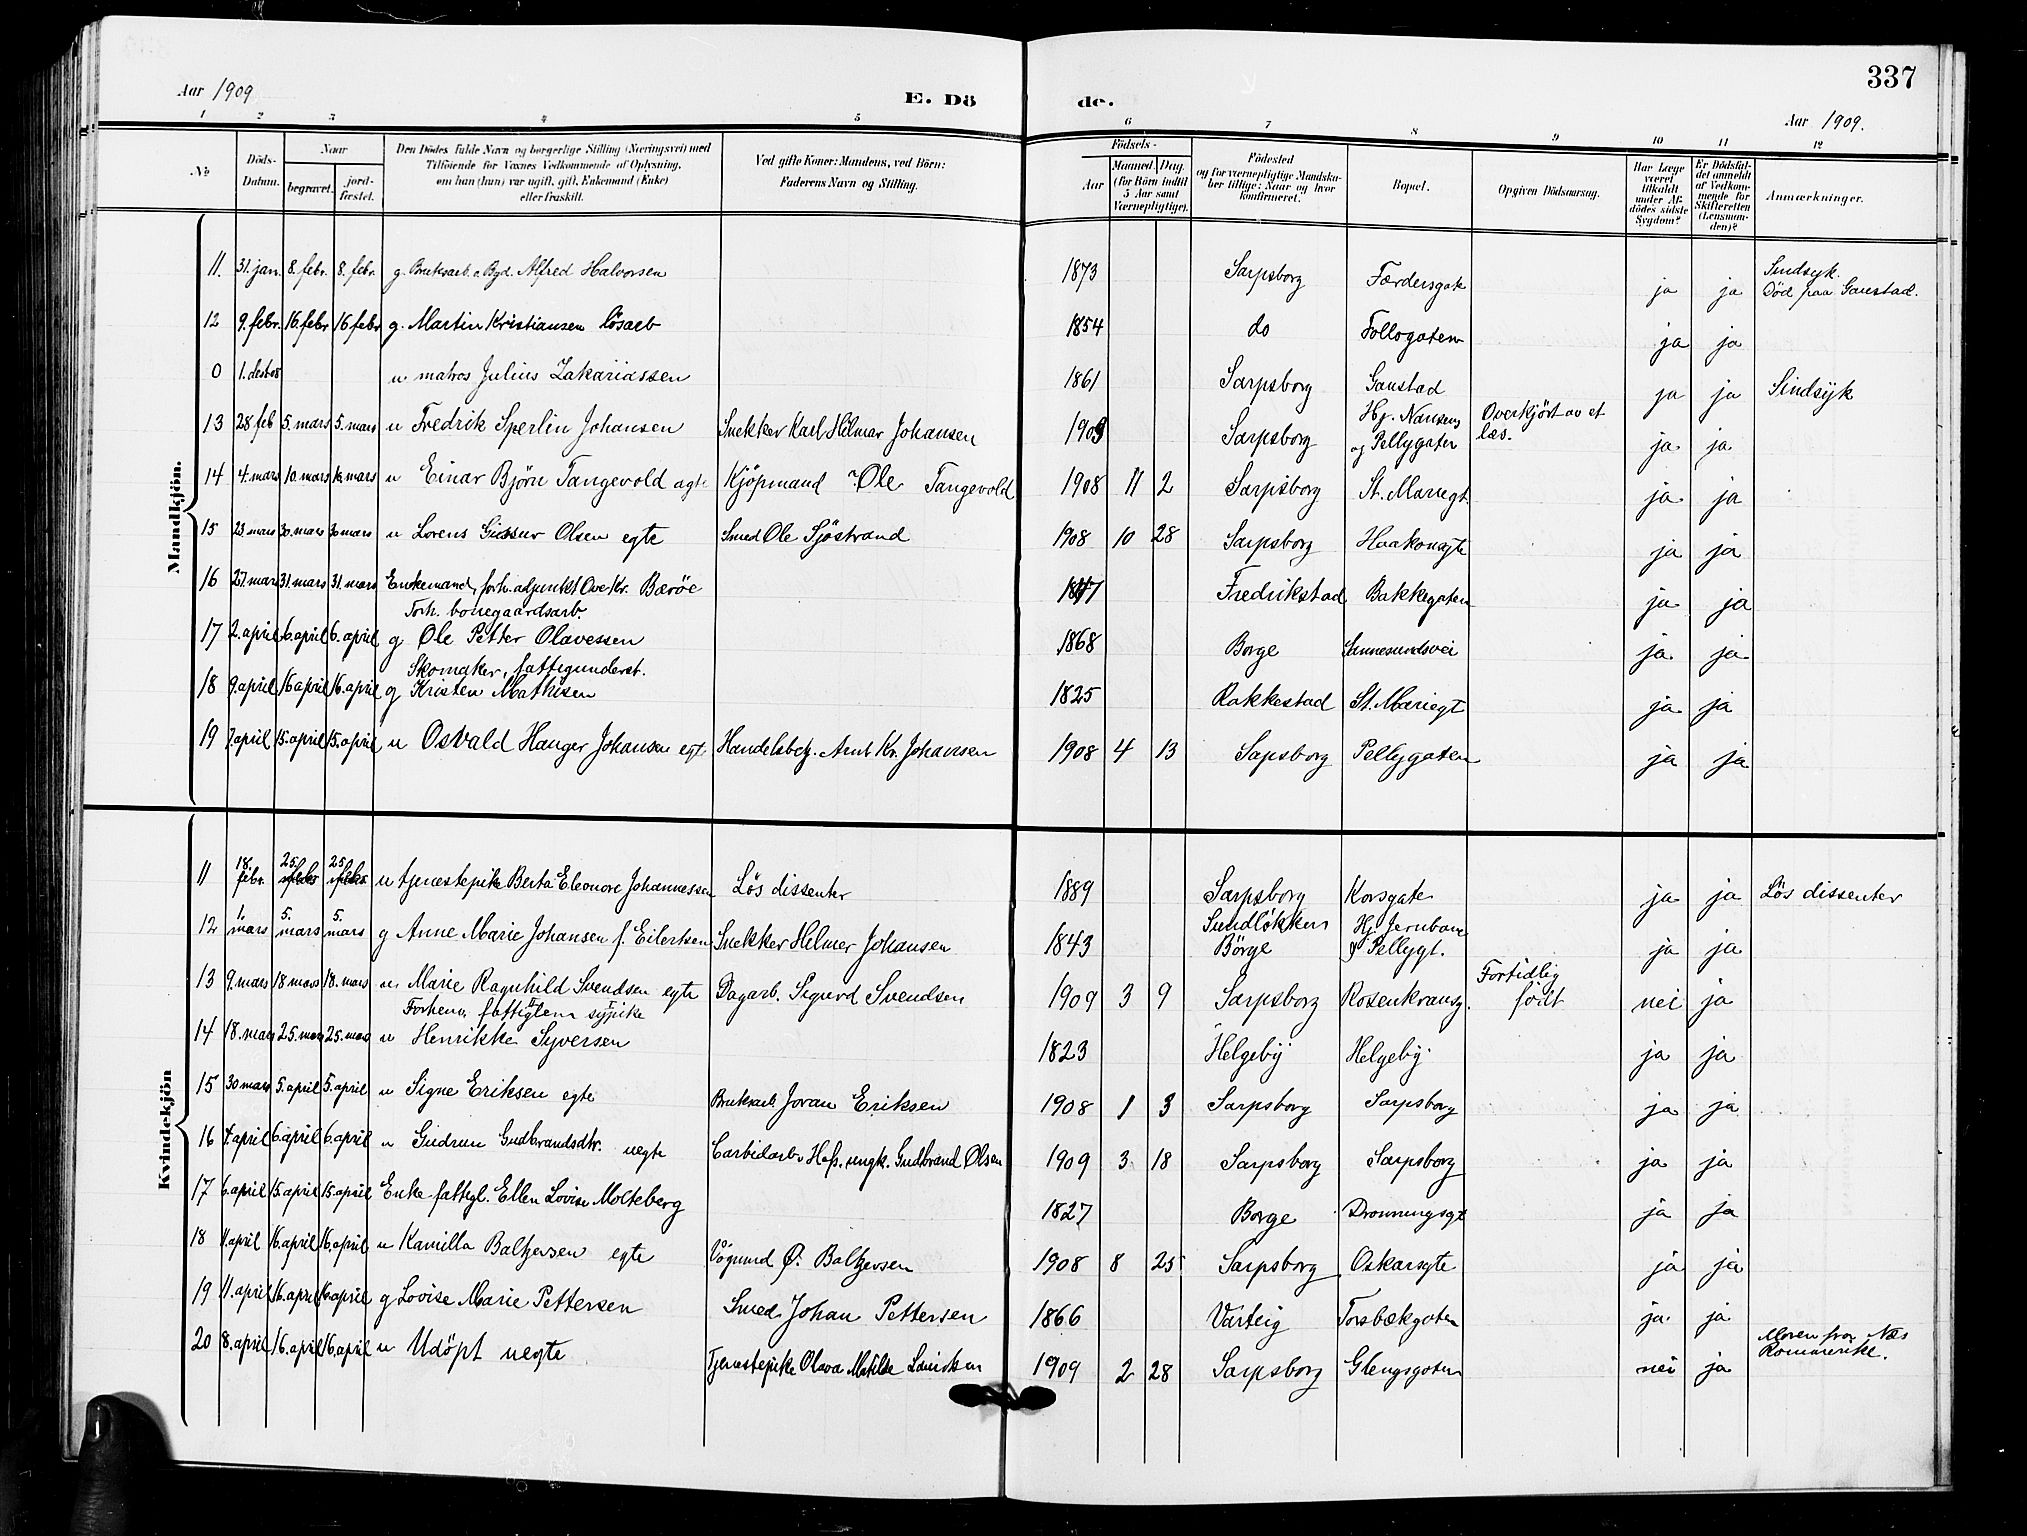 337
Aar 1909
E. Dö de.
Aar 1909.
1 2 3 4 5 6 7 8 9 10 11 12
№ Döds-Datum. Naar begravet. jord-fæstet. Den Dödes fulde Navn og borgerlige Stilling (Næringsvei) med Tilföiende for Voxnes Vedkommende af Oplysning, om han (hun) var ugift, gift, Enkemand (Enke) eller fraskilt. Ved gifte Koner: Mandens, ved Börn: Faderens Navn og Stilling. Födsels- Aar Maaned. Dag. (for Börn indtil 5 Aar samt Værnepligtige). Födested og for værnepligtige Mandska-ber tillige: Naar og hvor konfirmeret. Bopæl. Opgiven Dödsaarsag. Har Læge været tilkaldt under Af-dödes sidste Sygdom? Er Dödsfal-det anmeldt af Vedkom-mende for Skifteretten (Lensman-den)? Anmærkninger.
Mandkjön.
11. 31. jan. 8. febr. 8. febr. g. Bruksarb. Alfred Halvorsen 1873 Sarpsborg Færdersgate ja ja Sindsyk. Död paa Gaustad.
12 9. febr. 16. febr 16 febr g. Martin Kristiansen lösarb 1854 do Follogaten ja ja
0 1. des 08 u matros Julius Zakariassen 1861 Sarpsborg Gaustad ja ja Sindsyk
13 28 feb 5. mars 5. mars u Fredrik Sperlin Johansen Snekker Karl Helmar Johansen 1903 Sarpsborg Hj. Nansens og Pellygaten Overkjört av et læs. ja ja
14 4. mars 10. mars 10. mars u Einar Björn Tangevold egte Kjöpmand Ole Tangevold 1908 11 2 Sarpsborg St. Mariegt. ja ja
15 23. mars 30. mars 30 mars u Lorens Olsen egte Smed Ole Sjöstrand 1908 10 28 Sarpsborg Haakonsgte ja ja
16 27. mars 31. mars 31. mars Enkemand, forh. adjunkt Ove Kr. Bæröe Fredrikstad Bakkegaten ja ja
17 2. april 6. april 6. april g Forh. Ole Petter Olavessen 1868 Borge Sannesundsvei ja ja
18 9. april 16 april 16. april g Skomaker, fattigunderst. Kristen Mathisen 1825 Rakkestad St. Mariegt ja ja
19 7. april 15. april 15. april u Osvald Hauger Johansen egt. Handelsbetj. Arnt Kr. Johansen 1908 4 13 Sapsborg Pellygaten ja ja
Kvindekjön
11 18. febr. 25. 25. u tjenestepike Berta Eleonore Johannessen Lös dissenter 1889 Sarpsborg Korsgate ja ja Lös dissenter
12 1. mars 5. mars 5. mars g Anne Marie Johansen f. Eilertsen Snekker Helmer Johansen 1843 Sundlökken Börge Hj. Jernbane & Pellygt. ja ja
13 9. mars 18 mars 18. mars u Marie Ragnhild Svendsen egte Dagarb. Sigurd Svendsen 1909 3 9 Sarpsborg Rosenkransg. Fortidlig födt nei ja
14 18. mars 25. mars 25. mars u Forhenv. fattiglem sypike Henrikke Syversen 1823 Helgeby Helgeby ja ja
15 30 mars 5. april 5. april u Signe Eriksen egte Bruksarb. Jovan Eriksen 1908 1 3 Sarpsborg Sarpsborg ja ja
16 4. april 6. april 6. april u Gudrun Gudbrandsdtr. uegte Carbidarb. ungk. Gudbrand Olsen 1909 3 18 Sarpsborg Sarpsborg ja ja
17 6. april 15. april 15 april Enke fattigl. Ellen Lovise Molteberg 1827 Borge Dronningsgt ja ja
18 11. april 16. april 16. april u Kamilla Baltzersen egte Vögnmd Ø. Baltzersen 1908 8 25 Sarpsborg Oskarsgte ja ja
19 11. april 16. april 16 april g Lovise Marie Pettersen Smed Johan Pettersen 1866 Varteig Torsbækgaten ja ja
20 8. april 16. april 16. april u Udöpt uegte Tjenestepike Olava Matilde 1909 2 28 Sarpsborg Glengsgaten nei ja Moren fra Næs Romerike.